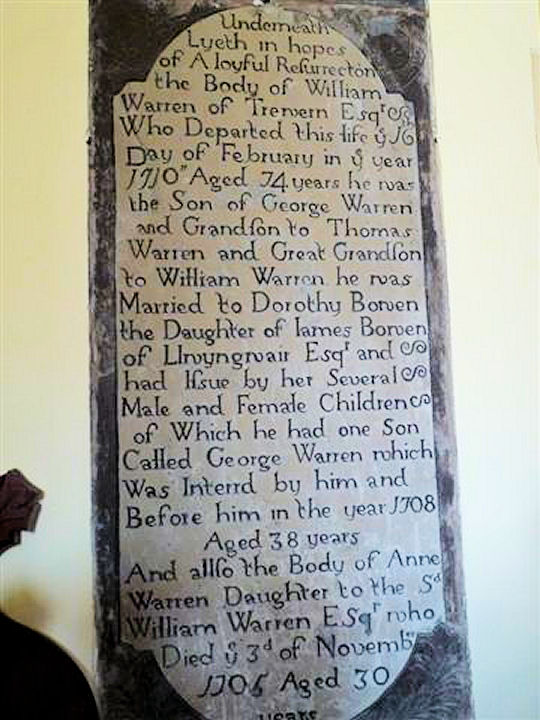 Underneath
Lyeth in hopes
of A Ioyful Reſurrecton
the Body of William
Warren of Trewern Esqr
Who Departed this life ẏ 16
Day of February in ẏ year
1710" Aged 74 years he was
the Son of George Warren
and Grandſon to Thomas
Warren and Great Grandſon
to William Warren he was
Married to Dorothy Bowen
the Daughter of Iames Bowen
of Llwyngwair Esqr and
had Iſsue by her Several
Male and Female Children
of Which he had one Son
Called George Warren which
Was Interrd by him and
Before him in the year 1708
Aged 38 years
And allſo the Body of Anne
Warren Daughter to the Sd
William Warren ESqr who
Died ẏ 3d of Novembr
Aged 30
years